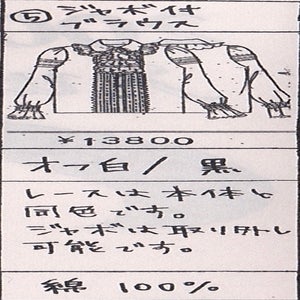 ⑤ ジャボ付
ブラウス
¥13800
オフ白/黒
レースは本体と
同色です。
ジャボは取り外し
可能です。
綿 100%